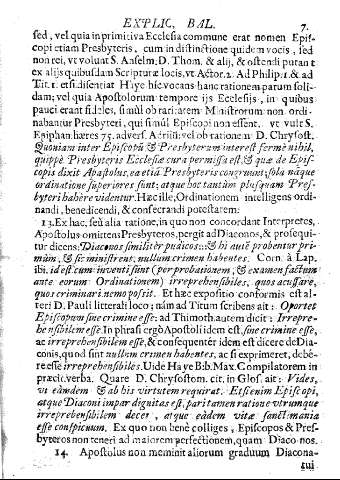 EXPLIC. BAL. 7.
sed, vel quia in primitiva Ecclesia commune erat nomen Epis-
copi etiam Presbyteris, cum in distinctione quidem vocis, sed
non rei, vt volunt S. Anselm; D. Thom. & alij, & ostendi putant
ex alijs quibusdam Scripturæ locis, vt Actor. 2. Ad Philip. 1. & ad
Tit. 1. etsi disentiat Haye hic vocans hanc rationem parum soli-
dam; vel quia Apostolorum tempore ijs Ecclesijs, in quibus
pauci erant fideles, simul ob raritatem Ministrorum non ordi-
nabantur Presbyteri, qui simul Episcopi non essent. vt vult S.
Epiphan. hæres 75. advers. Aërium: vel ob rationem D. Chrysost.
Quoniam inter Episcopū & Presbyterum interest fermè nihil,
quippè Presbyteris Ecclesiæ cura permissa est, & quæ de Epis-
copis dixit Apostolus, ea etiā Presbyteris congruunt; sola náque
ordinatione superiores sunt; atque hoc tantùm plusquam Pres-
byteri habere videntur. Hæc ille, Ordinationem intelligens ordi-
nandi, benedicendi, & consecrandi potestatem:
13. Ex hac, seù alia ratione, in quò non concordant Interpretes,
Apostolus omittens Presbyteros, pergit ad Diaconos, & prosequi-
tur dicens: Diaconos similitèr pudicos::: & hi autē probentur pri-
mùm, & sic ministrent; nullum crimen habentes. Corn. à Lap.
ibi. id est cùm inventi sunt (per probationem, & examen factum
ante eorum Ordinationem) irreprehensibiles, quos accusare,
quos criminari nemo possit. Et hæc expositio conformis est al-
teri D. Pauli litterati loco; nàm ad Titum scribens ait: Oportet
Episcopum sine crimine esse; ad Thimoth. autem dicit: Irrepre-
hensibilem esse. In phrasi ergò Apostoli idem est, sine crimine esse,
ac irreprehensibilem esse, & consequentèr idem est dicere de Dia-
conis, quod sint nullum crimen habentes, ac si exprimeret, debê-
re esse irreprehensibiles. Uide Haye Bib. Max. Compilatorem in
præcit. verba. Quare D. Chrysostom. cit. in Glos. ait: Vides,
vt eamdem & ab his virtutem requirat. Etsi enim Episcopi,
atque Diaconi impar dignitas est, pari tamen ratione utrumque
irreprehensibilem decet, atque eâdem vitæ sanctimonia
esse conspicuum. Ex quo non benè colliges, Episcopos & Pres-
byteros non teneri ad maiorem perfectionem, quam Diaconos.
14. Apostolus non meminit aliorum graduum Diacona-
tui